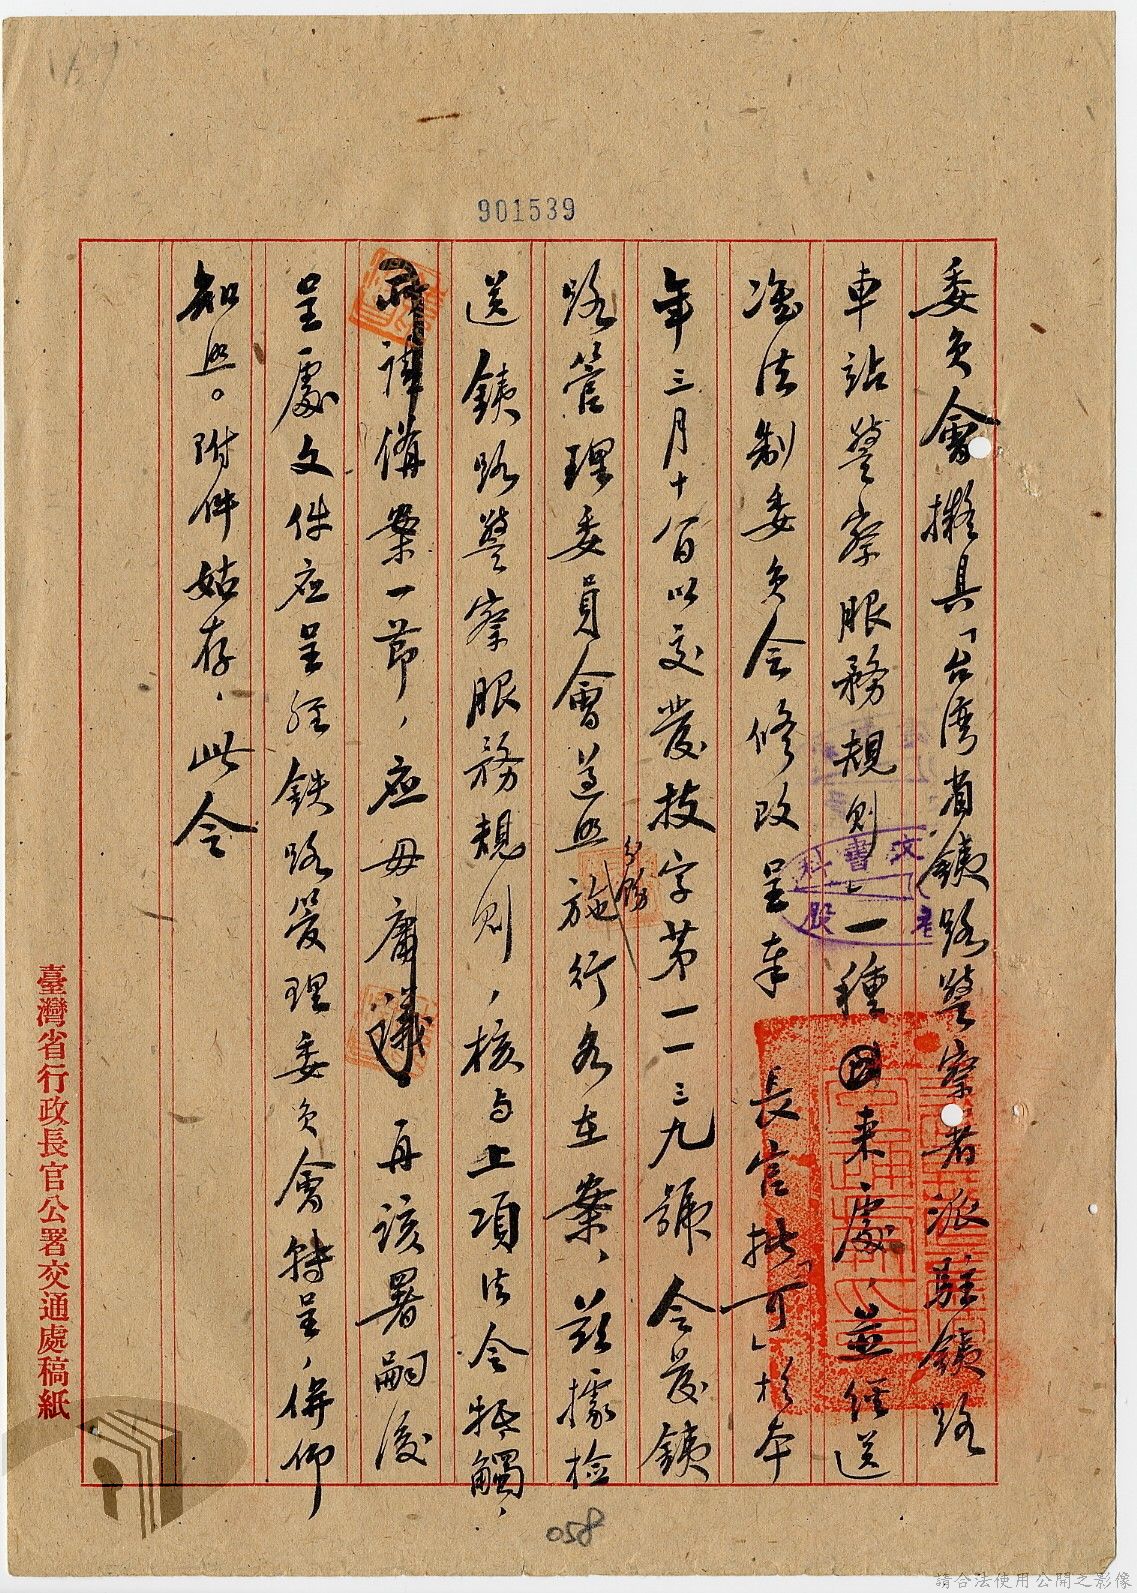 901539
委員會擬具「台湾省鉄路警察署派駐鉄路
車站警察服務規則」一種來處、並經送
准法制委員会修改呈奉 長官批「可」於本
年三月十八日以交發技字第一一三九號令發鉄
路管理委員會遵照分飭施行各在案、茲據檢
送鉄路警察服務規則，核与上項法令牴觸、
所請備案一節，应毋庸議。再該署嗣後
呈處文件应呈經鉄路管理委員會轉呈，併仰
知照。附件姑存，此令
臺灣省行政長官公署交通處稿紙
文書科
股
058
請合法使用公開之影像